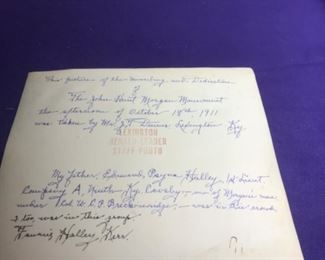 This picture of the unveiling and Dedication
of
The John Hunt Morgan Monument
the afternoon of October 18th 1911
was taken by Mr. J. F. Lexington Ky.
LEXINGTON
HERALD-LEADER
STAFF PHOTO
My father, Edward Payne Halley 1st Lieut
Company A, Ky. Cavalry – one of Morgan's men
under Col W. C. P. Breckenridge, – was in this parade
I too was in this group.
Halley Kerr